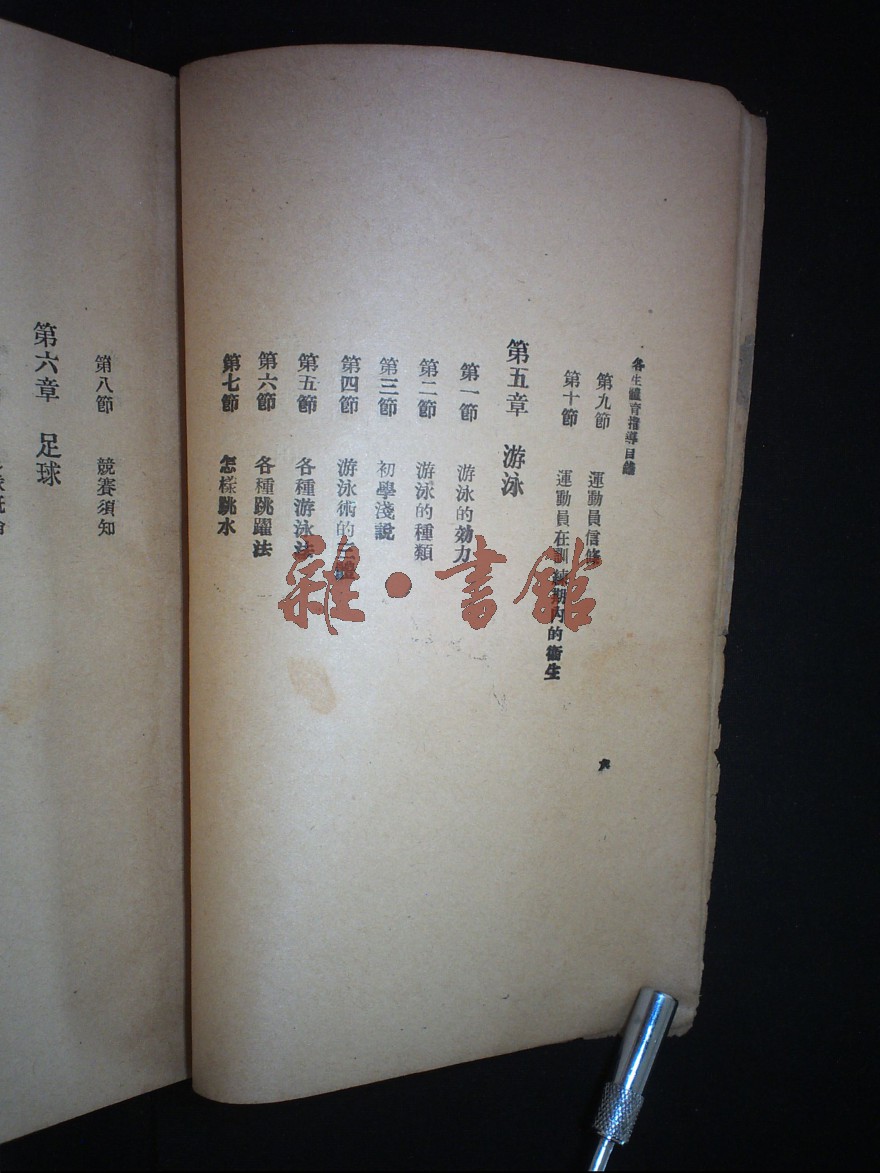 各生體育指導目錄
第九節 運動員信條
第十節 運動員在訓練期內的衞生
第五章 游泳
第一節 游泳的効力
第二節 游泳的種類
第三節 初學淺說
第四節 游泳術的三體
第五節 各種游泳法
第六節 各種跳躍法
第七節 怎樣跳水
六
第八節 競賽須知
第六章 足球
雜·書館